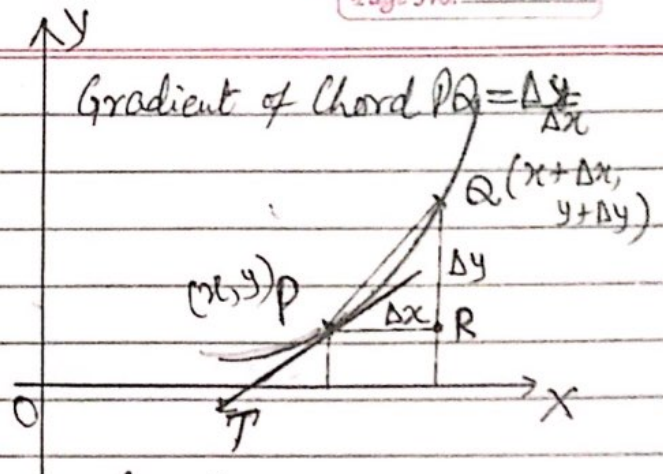 Y
Gradient of Chord PQ = Δy
Δx
Q (x+Δx,
y+Δy)
Δy
(x,y) P
Δx
R
O
X
T